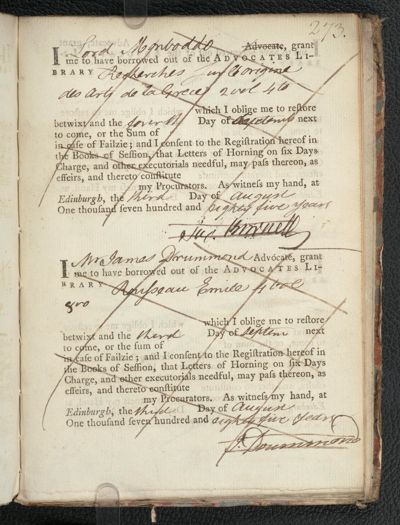 273.
I Lord Monboddo Advocate, grant
me to have borrowed out of the ADVOCATES LI-
BRARY Recherches sur l'origine
des Arts de la Grece 2 vol 4to
which I oblige me to restore
betwixt and the Day of next
to come, or the Sum of
in case of Failzie; and I consent to the Registration hereof in
the Books of Session, that Letters of Horning on six Days
Charge, and other executorials needful, may pass thereon, as
effeirs, and thereto constitute
my Procurators. As witness my hand, at
Edinburgh, the third Day of August
One thousand seven hundred and eighty five years
Jas. Burnett
I Mr James Drummond Advocate, grant
me to have borrowed out of the ADVOCATES LI-
BRARY Rousseau Emile 4 vol
8vo
which I oblige me to restore
betwixt and the third Day of Septem next
to come, or the sum of
in case of Failzie; and I consent to the Registration hereof in
the Books of Session, that Letters of Horning on six Days
Charge, and other executorials needful, may pass thereon, as
effeirs, and thereto constitute
my Procurators. As witness my hand, at
Edinburgh, the third Day of August
One thousand seven hundred and eighty five years
J. Drummond